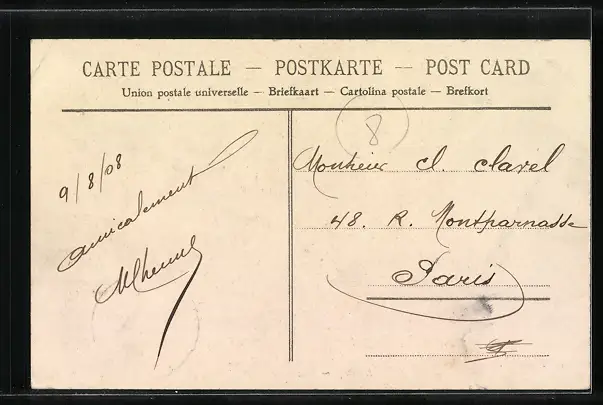 CARTE POSTALE — POSTKARTE — POST CARD
Union postale universelle — Briefkaart — Cartolina postale — Brefkort
8
9/8/08
amicalement
Monsieur Cl. Clavel
48. R. Montparnasse
Paris